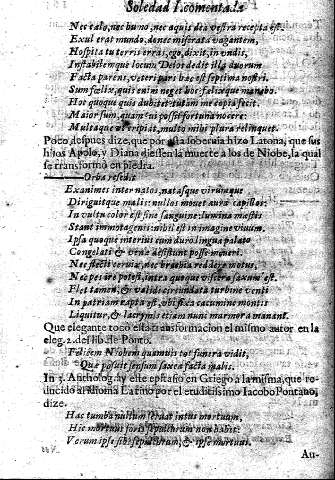 Soledad I. comentada
Nec cælo, nec humo, nec aquis dea vestra recepta est.
Exul erat mundo, donec miserata vagantem,
Hospita tu terris erras, ego, dixit, in undis,
Instabilemque locum Delos dedit illa duorum
Facta parens, uteri pars hæc est septima nostri.
Sum fœlix, quis enim neget hoc? fœlixque manebo.
Hoc quoque quis dubitet? tutam me copia fecit.
Maior sum, quam cui possit fortuna nocere:
Multaque ut eripiat, multo mihi plura relinquet.
Poco despues dize, que por esta soberuia hizo Latona, que sus
hijos Apolo, y Diana diessen la muerte a los de Niobe, la qual
se transformò en piedra.
Orba resedit
Exanimes inter natos, natasque virumque
Diriguitque malis: nullos mouet aura capillos:
In vultu color est sine sanguine: lumina mæstis
Stant immota genis: nihil est in imagine viuum.
Ipsa quoque interius cum duro lingua palato
Congelat: & venæ desistunt posse moueri.
Nec flecti ceruix, nec brachia reddere motus,
Nec pes ire potest, intra quoque viscera saxum est.
Flet tamen, & validi circundata turbine venti
In patriam rapta est, vbi fixa cacumine montis
Liquitur, & lacrymis etiam nunc marmora manant.
Que elegante tocò esta transformacion el mismo autor en la
eleg. 2. del lib. de Ponto.
Fœlicem Niobem quamuis tot funera vidit,
Quæ posuit sensum saxea facta malis.
In 3. Antholog. ay este epitafio en Griego a la misma, que re-
ducido al idioma Latino por el eruditissimo Iacobo Pontano,
dize.
Hac tumba nullum seruat intus mortuum,
Hic mortuus foris sepulchrum non habet:
Verum ipse sibi sepulchrum, & ipse mortuus.
Au-